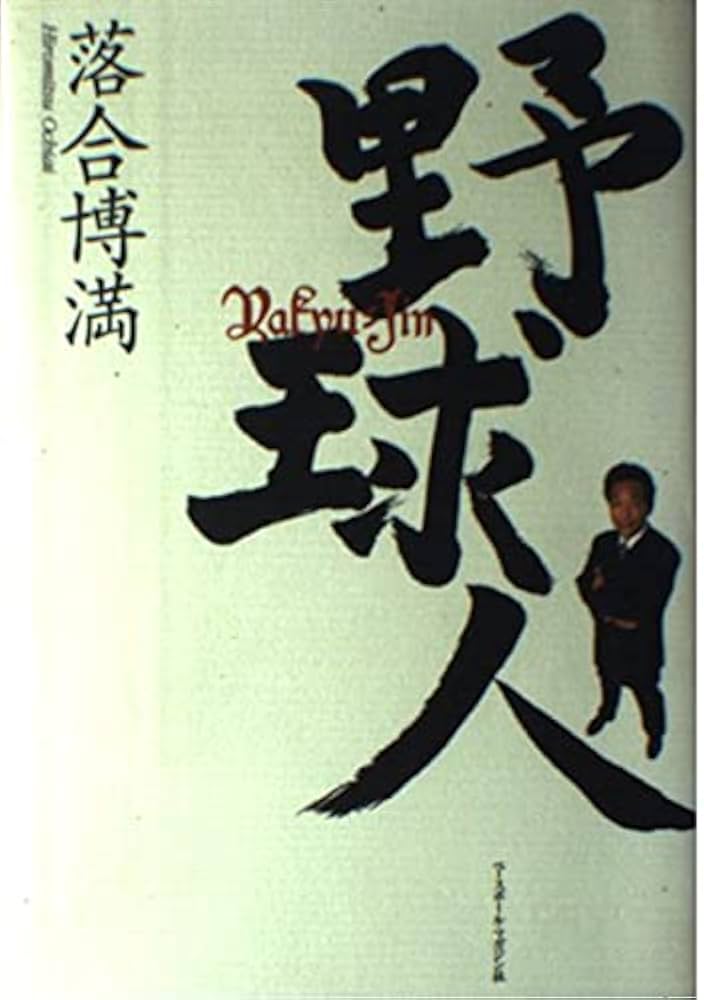 野球人
Yakyū-Jin
落合博満
Hiromitsu Ochiai
ベースボール・マガジン社